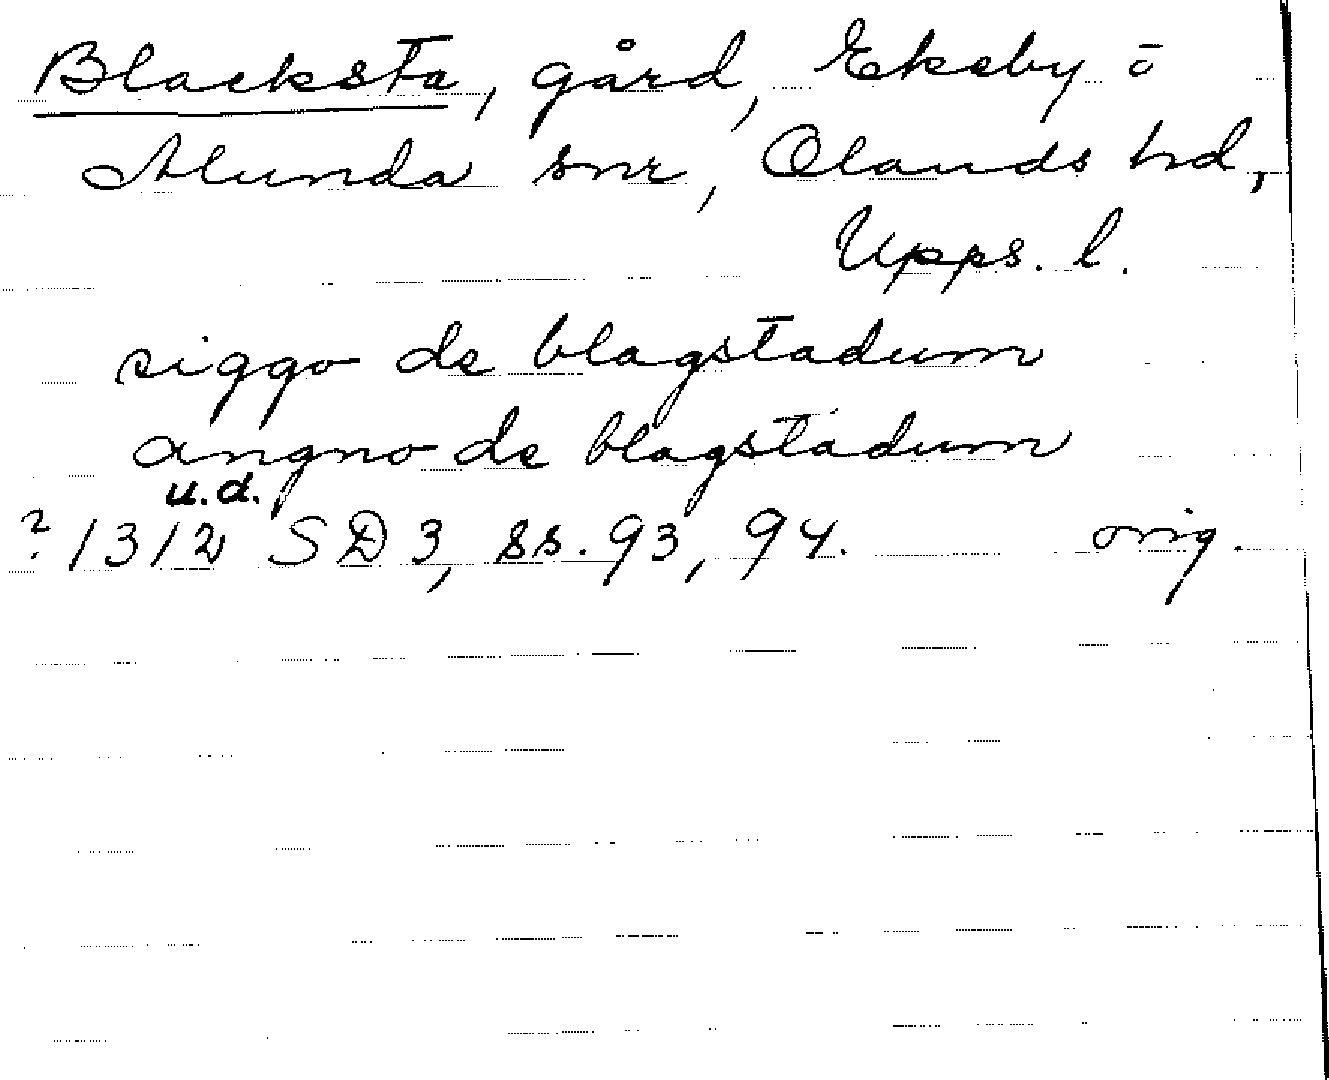 Blacksta, gård, Ekeby o
Alunda snr, Olands hd,
Upps. l.
siggo de blagstadum
angno de blagstadum
u.d.
? 1312 SD 3, ss. 93, 94. orig.